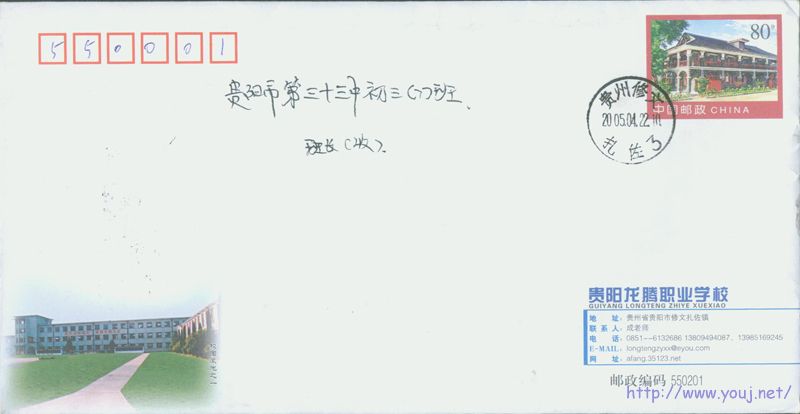 550001
80
中国邮政 CHINA
贵州修文
2005.04.22
扎佐3
贵阳市第三十三中初三(7)班
班长(收)
贵阳龙腾职业学校
GUIYANG LONGTENG ZHIYE XUEXIAO
地 址: 贵州省贵阳市修文扎佐镇
联 系 人: 成老师
电 话: 0851--6132686 13809494087、13985169245
E-MAIL: longtengzyxx@eyou.com
网 址: afang.35123.net
邮政编码 550201
http://www.youj.net/